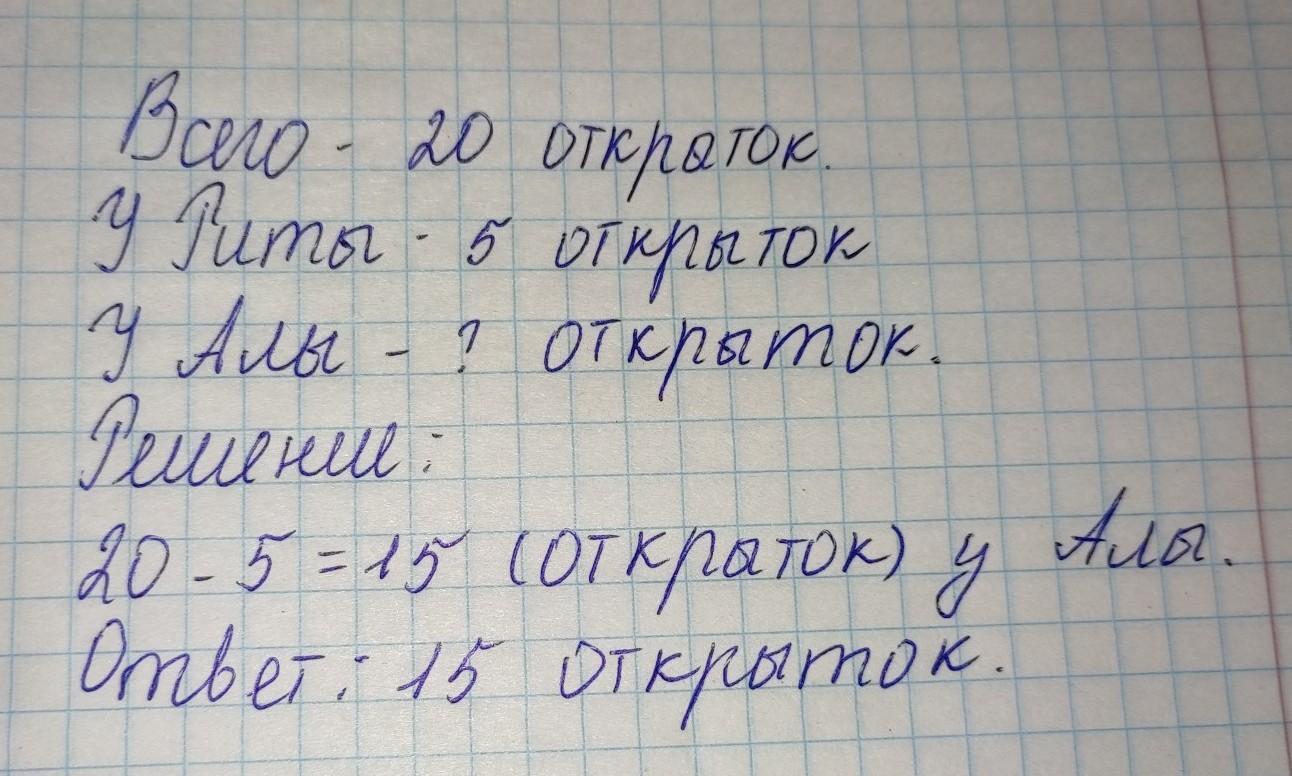 Всего - 20 открыток.
У Риты - 5 открыток
У Алы - ? открыток.
Решение:
20 - 5 = 15 (открыток) у Алы.
Ответ: 15 открыток.